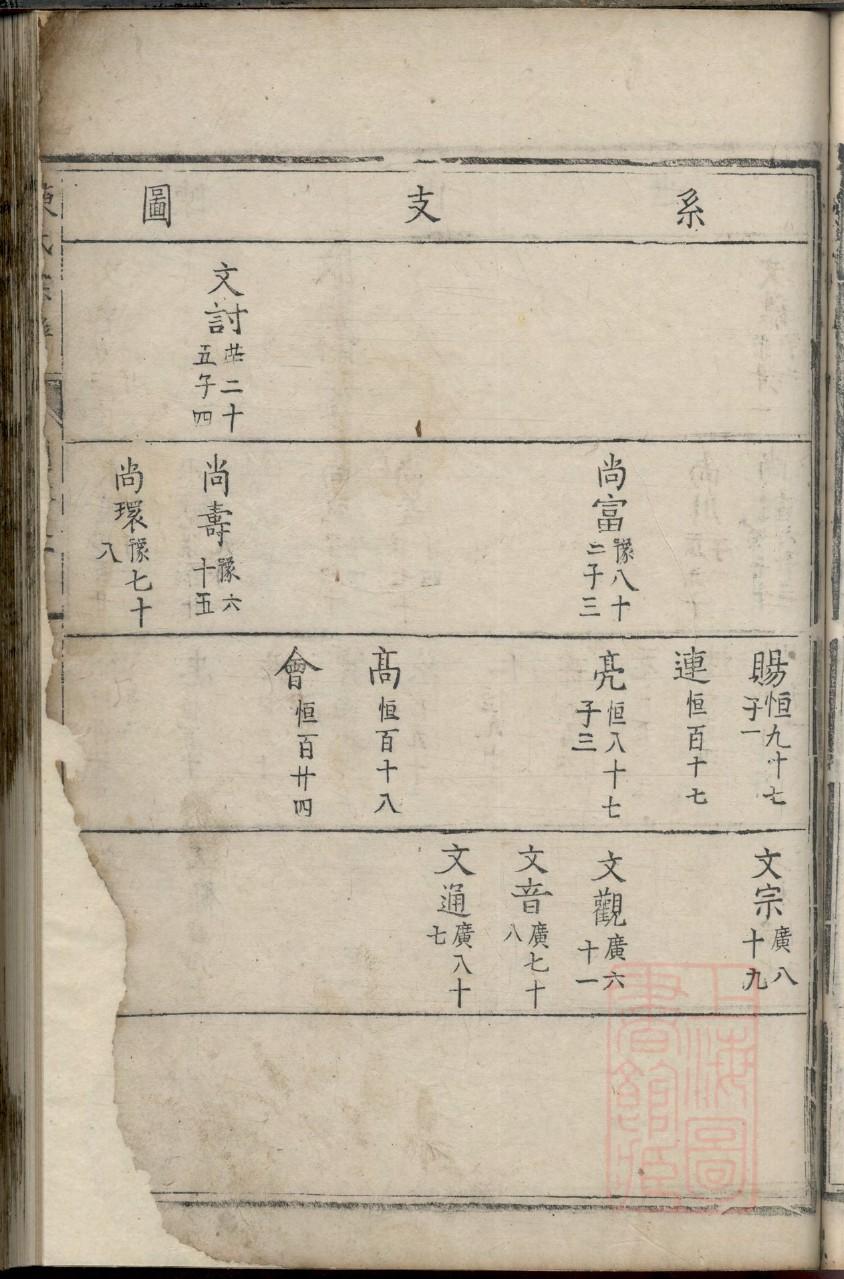 系支圖
文討 茁二十五子四
尚富 豫八十二子三
尚壽 豫六十五
尚環 豫七十八
賜 恒九十七子一
連 恒百十七
亮 恒八十七子三
高 恒百十八
會 恒百廿四
文宗 廣八十九
文觀 廣六十一
文音 廣七十八
文通 廣八十七
上海圖書館藏